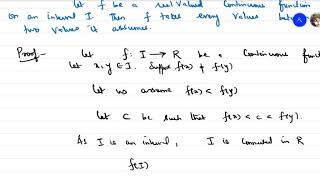 let f be a real valued continuous function
on an interval I. Then f takes every values betw
two values it assumes.
Proof:- Let f: I → R be a Continuous funct
Let x, y ∈ I. Suppose f(x) ≠ f(y)
Let us assume f(x) < f(y)
Let c be such that f(x) < c < f(y).
As I is an interval, I is connected in R
f(I)